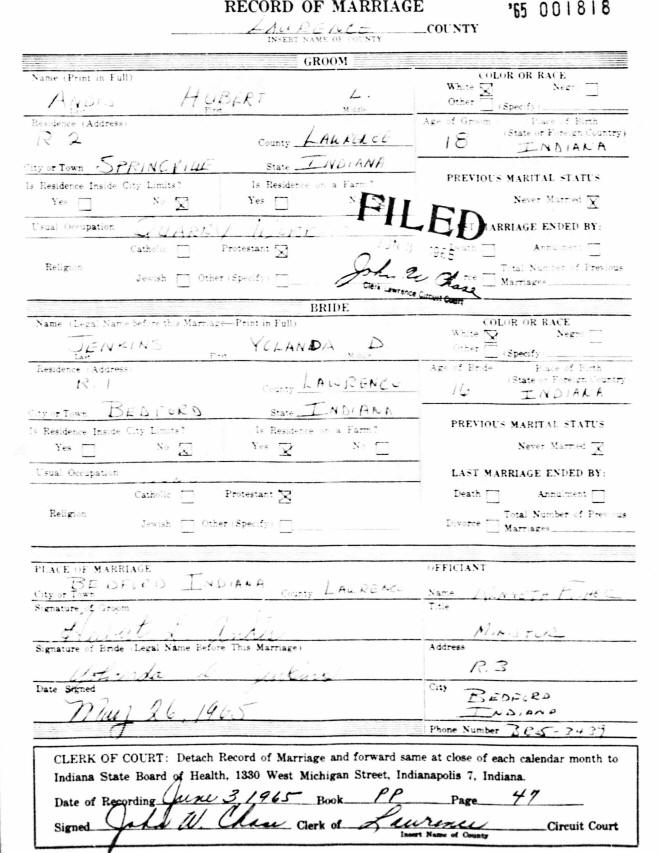 RECORD OF MARRIAGE '65 001818
LAWRENCE COUNTY
INSERT NAME OF COUNTY
GROOM
Name (Print in Full) COLOR OR RACE
White Negro
ANDIS HUBERT L. Other (Specify)
First Middle
Residence (Address) Age of Groom Place of Birth
(State or Foreign Country)
R 2 County LAWRENCE 18 INDIANA
City or Town SPRINGVILLE State INDIANA
PREVIOUS MARITAL STATUS
Is Residence Inside City Limits? Is Residence on a Farm?
Yes No Yes Never Married
FILED
Usual Occupation QUARRY MARRIAGE ENDED BY:
1965
Catholic Protestant Death Annulment
Religion Total Number of Previous
Jewish Other (Specify) Marriages
John W Chase
Clerk Lawrence Circuit Court
BRIDE
Name (Legal Name before this Marriage—Print in Full) COLOR OR RACE
White Negro
JENKINS YOLANDA D Other (Specify)
Last First Middle
Residence (Address) Age of Bride Place of Birth
(State or Foreign Country)
R. 1 County LAWRENCE 16 INDIANA
City or Town BEDFORD State INDIANA
PREVIOUS MARITAL STATUS
Is Residence Inside City Limits? Is Residence on a Farm?
Yes No Yes No Never Married
Usual Occupation LAST MARRIAGE ENDED BY:
Catholic Protestant Death Annulment
Religion Total Number of Previous
Jewish Other (Specify) Divorce Marriages
PLACE OF MARRIAGE OFFICIANT
BEDFORD INDIANA LAWRENCE
City or Town County Name KENNETH
Signature of Groom Title
Hubert L Andis MINISTER
Signature of Bride (Legal Name Before This Marriage) Address
Yolanda D Jenkins R. 3
Date Signed City BEDFORD
May 26, 1965 INDIANA
Phone Number BR5-3439
CLERK OF COURT: Detach Record of Marriage and forward same at close of each calendar month to
Indiana State Board of Health, 1330 West Michigan Street, Indianapolis 7, Indiana.
Date of Recording June 3, 1965 Book PP Page 47
Signed John W. Chase Clerk of Lawrence Circuit Court
Insert Name of County